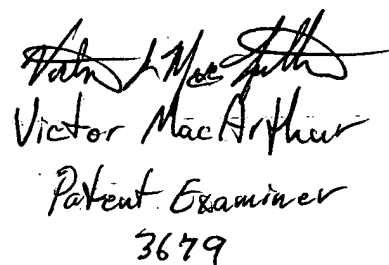 Victor L MacArthur
Victor MacArthur
Patent Examiner
3679